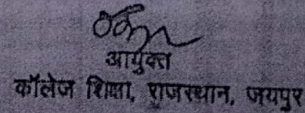 आयुक्त
कॉलेज शिक्षा, राजस्थान, जयपुर